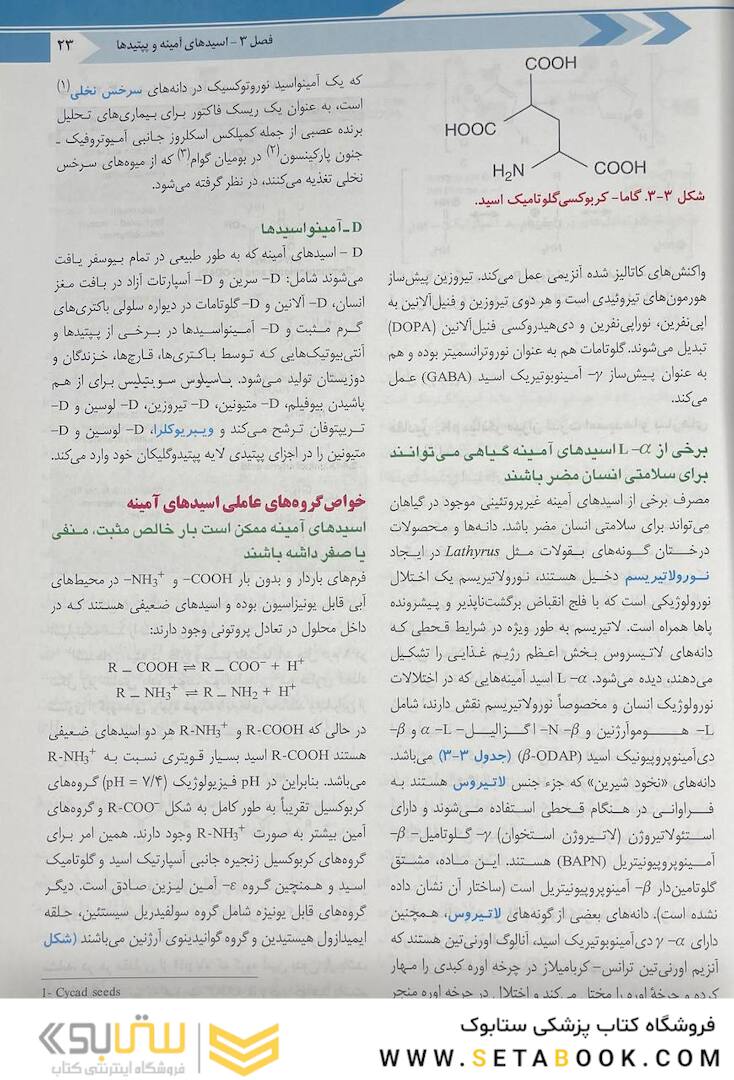 فصل ۳ - اسیدهای آمینه و پپتیدها
۲۳
COOH
HOOC
H₂N
COOH
شکل ۳-۳. گاما- کربوکسی‌گلوتامیک اسید.
واکنش‌های کاتالیز شده آنزیمی عمل می‌کند. تیروزین پیش‌ساز
هورمون‌های تیروئیدی است و هر دوی تیروزین و فنیل‌آلانین به
اپی‌نفرین، نوراپی‌نفرین و دی‌هیدروکسی فنیل‌آلانین (DOPA)
تبدیل می‌شوند. گلوتامات هم به عنوان نوروترانسمیتر بوده و هم
به عنوان پیش‌ساز γ- آمینوبوتیریک اسید (GABA) عمل
می‌کند.
برخی از L-α اسیدهای آمینه گیاهی می‌توانند
برای سلامتی انسان مضر باشند
مصرف برخی از اسیدهای آمینه غیرپروتئینی موجود در گیاهان
می‌تواند برای سلامتی انسان مضر باشد. دانه‌ها و محصولات
درختان گونه‌های بقولات مثل Lathyrus در ایجاد
نورولاتیریسم دخیل هستند، نورولاتیریسم یک اختلال
نورولوژیکی است که با فلج انقباض برگشت‌ناپذیر و پیشرونده
پاها همراه است. لاتیریسم به طور ویژه در شرایط قحطی که
دانه‌های لاتیسروس بخش اعظم رژیم غذایی را تشکیل
می‌دهند، دیده می‌شود. L-α اسید آمینه‌هایی که در اختلالات
نورولوژیک انسان و مخصوصاً نورولاتیریسم نقش دارند، شامل
L- هوموآرژنین و β-N- اگزالیل- L-α و β-
دی‌آمینوپروپیونیک اسید (β-ODAP) (جدول ۳-۳) می‌باشد.
دانه‌های «نخود شیرین» که جزء جنس لاتیروس هستند به
فراوانی در هنگام قحطی استفاده می‌شوند و دارای
استئولاتیروژن (لاتیروژن استخوان) γ- گلوتامیل- β-
آمینوپروپیونیتریل (BAPN) هستند. این ماده، مشتق
گلوتامین‌دار β- آمینوپروپیونیتریل است (ساختار آن نشان داده
نشده است). دانه‌های بعضی از گونه‌های لاتیروس، همچنین
دارای α- γ دی‌آمینوبوتیریک اسید، آنالوگ اورنی‌تین هستند که
آنزیم اورنی‌تین ترانس- کربامیلاز در چرخه اوره کبدی را مهار
کرده و چرخهٔ اوره را مختل می‌کند و اختلال در چرخه اوره منجر
که یک آمینواسید نوروتوکسیک در دانه‌های سرخس نخلی(۱)
است، به عنوان یک ریسک فاکتور برای بیماری‌های تحلیل
برنده عصبی از جمله کمپلکس اسکلروز جانبی آمیوتروفیک -
جنون پارکینسون(۲) در بومیان گوام(۳) که از میوه‌های سرخس
نخلی تغذیه می‌کنند، در نظر گرفته می‌شود.
D - آمینواسیدها
D - اسیدهای آمینه که به طور طبیعی در تمام بیوسفر یافت
می‌شوند شامل: D- سرین و D- آسپارتات آزاد در بافت مغز
انسان، D- آلانین و D- گلوتامات در دیواره سلولی باکتری‌های
گرم مثبت و D- آمینواسیدها در برخی از پپتیدها و
آنتی‌بیوتیک‌هایی که توسط باکتری‌ها، قارچ‌ها، خزندگان و
دوزیستان تولید می‌شود. باسیلوس سوبتیلیس برای از هم
پاشیدن بیوفیلم، D- متیونین، D- تیروزین، D- لوسین و D-
تریپتوفان ترشح می‌کند و ویبریوکلرا، D- لوسین و D-
متیونین را در اجزای پپتیدی لایه پپتیدوگلیکان خود وارد می‌کند.
خواص گروه‌های عاملی اسیدهای آمینه
اسیدهای آمینه ممکن است بار خالص مثبت، منفی
یا صفر داشته باشند
فرم‌های باردار و بدون بار COOH- و NH₃⁺- در محیط‌های
آبی قابل یونیزاسیون بوده و اسیدهای ضعیفی هستند که در
داخل محلول در تعادل پروتونی وجود دارند:
R – COOH ⇌ R – COO⁻ + H⁺
R – NH₃⁺ ⇌ R – NH₂ + H⁺
در حالی که R-COOH و R-NH₃⁺ هر دو اسیدهای ضعیفی
هستند R-COOH اسید بسیار قویتری نسبت به R-NH₃⁺
می‌باشد. بنابراین در pH فیزیولوژیک (pH = ۷/۴) گروه‌های
کربوکسیل تقریباً به طور کامل به شکل R-COO⁻ و گروه‌های
آمین بیشتر به صورت R-NH₃⁺ وجود دارند. همین امر برای
گروه‌های کربوکسیل زنجیره جانبی آسپارتیک اسید و گلوتامیک
اسید و همچنین گروه ε- آمین لیزین صادق است. دیگر
گروه‌های قابل یونیزه شامل گروه سولفیدریل سیستئین، حلقه
ایمیدازول هیستیدین و گروه گوانیدینوی آرژنین می‌باشند (شکل
1- Cycad seeds
فروشگاه کتاب پزشکی ستابوک
WWW.SETABOOK.COM
ستابوک
فروشگاه اینترنتی کتاب